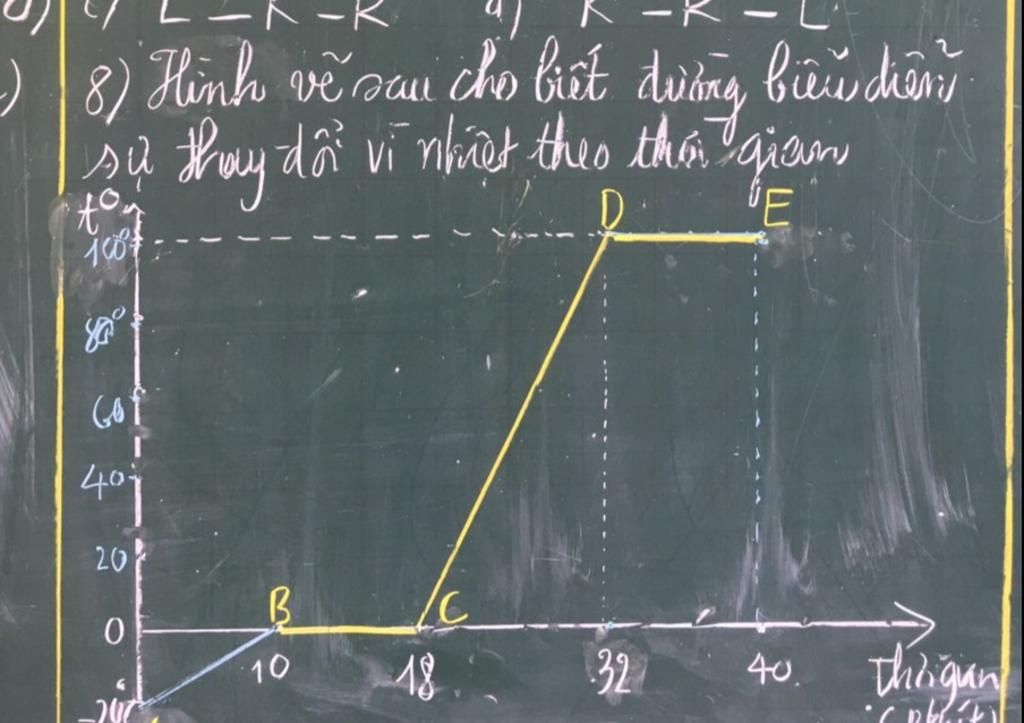 c) L – K – K d) K – K – L
8) Hình vẽ sau cho biết đường biểu diễn
sự thay đổi vì nhiệt theo thời gian
t°
D E
100°
80°
60
40
20
B C
0
10 18 32 40 Thời gian
-20